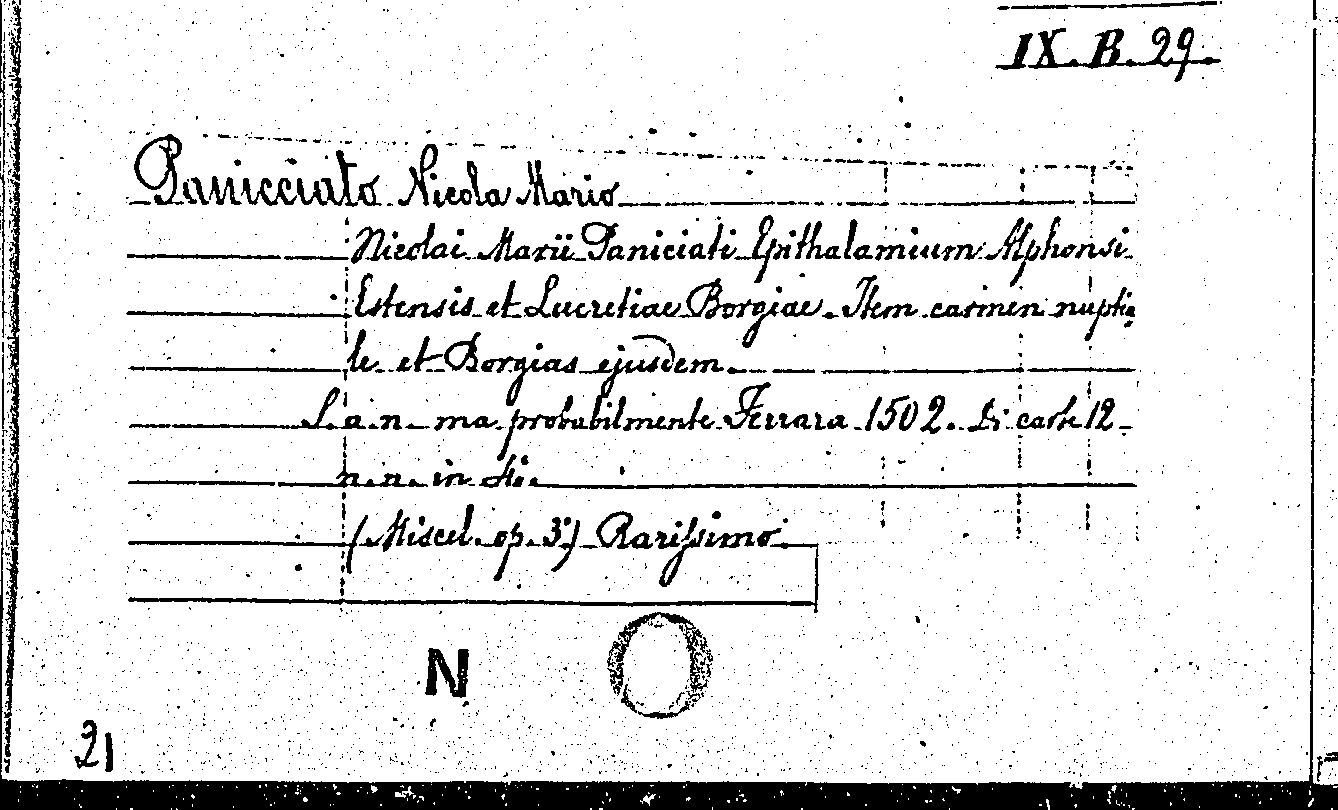 IX. B. 29.
Panicciato Nicola Mario
Nicolai Marii Paniciati Epithalamium Alphonsi
Estensis et Lucretiae Borgiae. Item carmen nuptia
le et Borgias ejusdem.
S. a. n. ma probabilmente Ferrara 1502. Di carte 12
n. n. in 4º.
(Miscel. op. 3ª) Rarissimo.
N
21